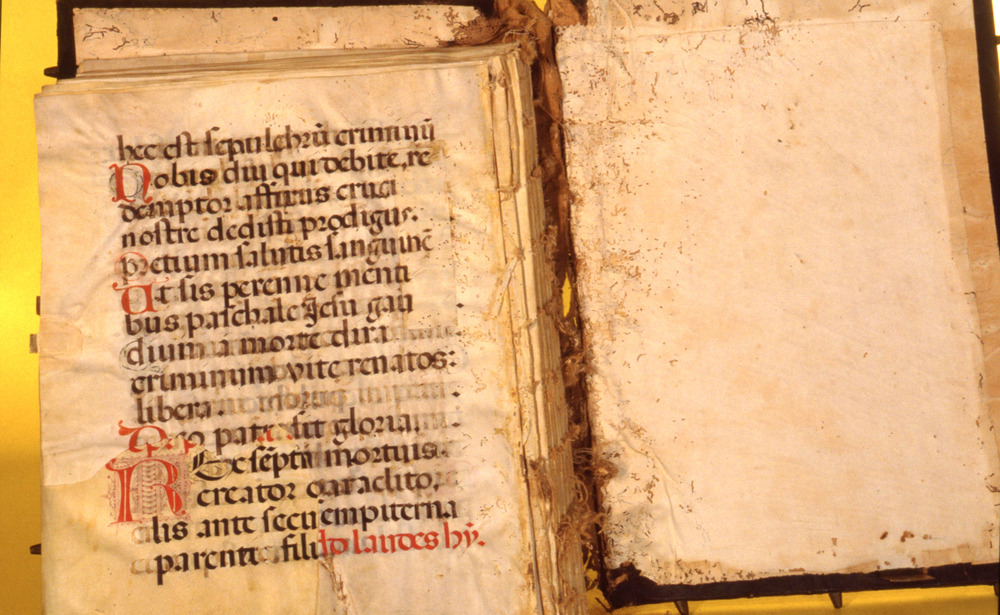 hec est sepulchrū criminū
Nobis diu qui debite, re
demptor affixus cruci
nostre dedisti prodigus.
pretium salutis sanguinē
Ut sis perenne menti
bus paschale Jesu gau
dium a morte dira
criminum vite renatos:
libera.
Deo patri sit gloria,
et septi mortuis
R creator paraclito,
lis ante sempiterna
parenti fili Ad laudes hȳ.